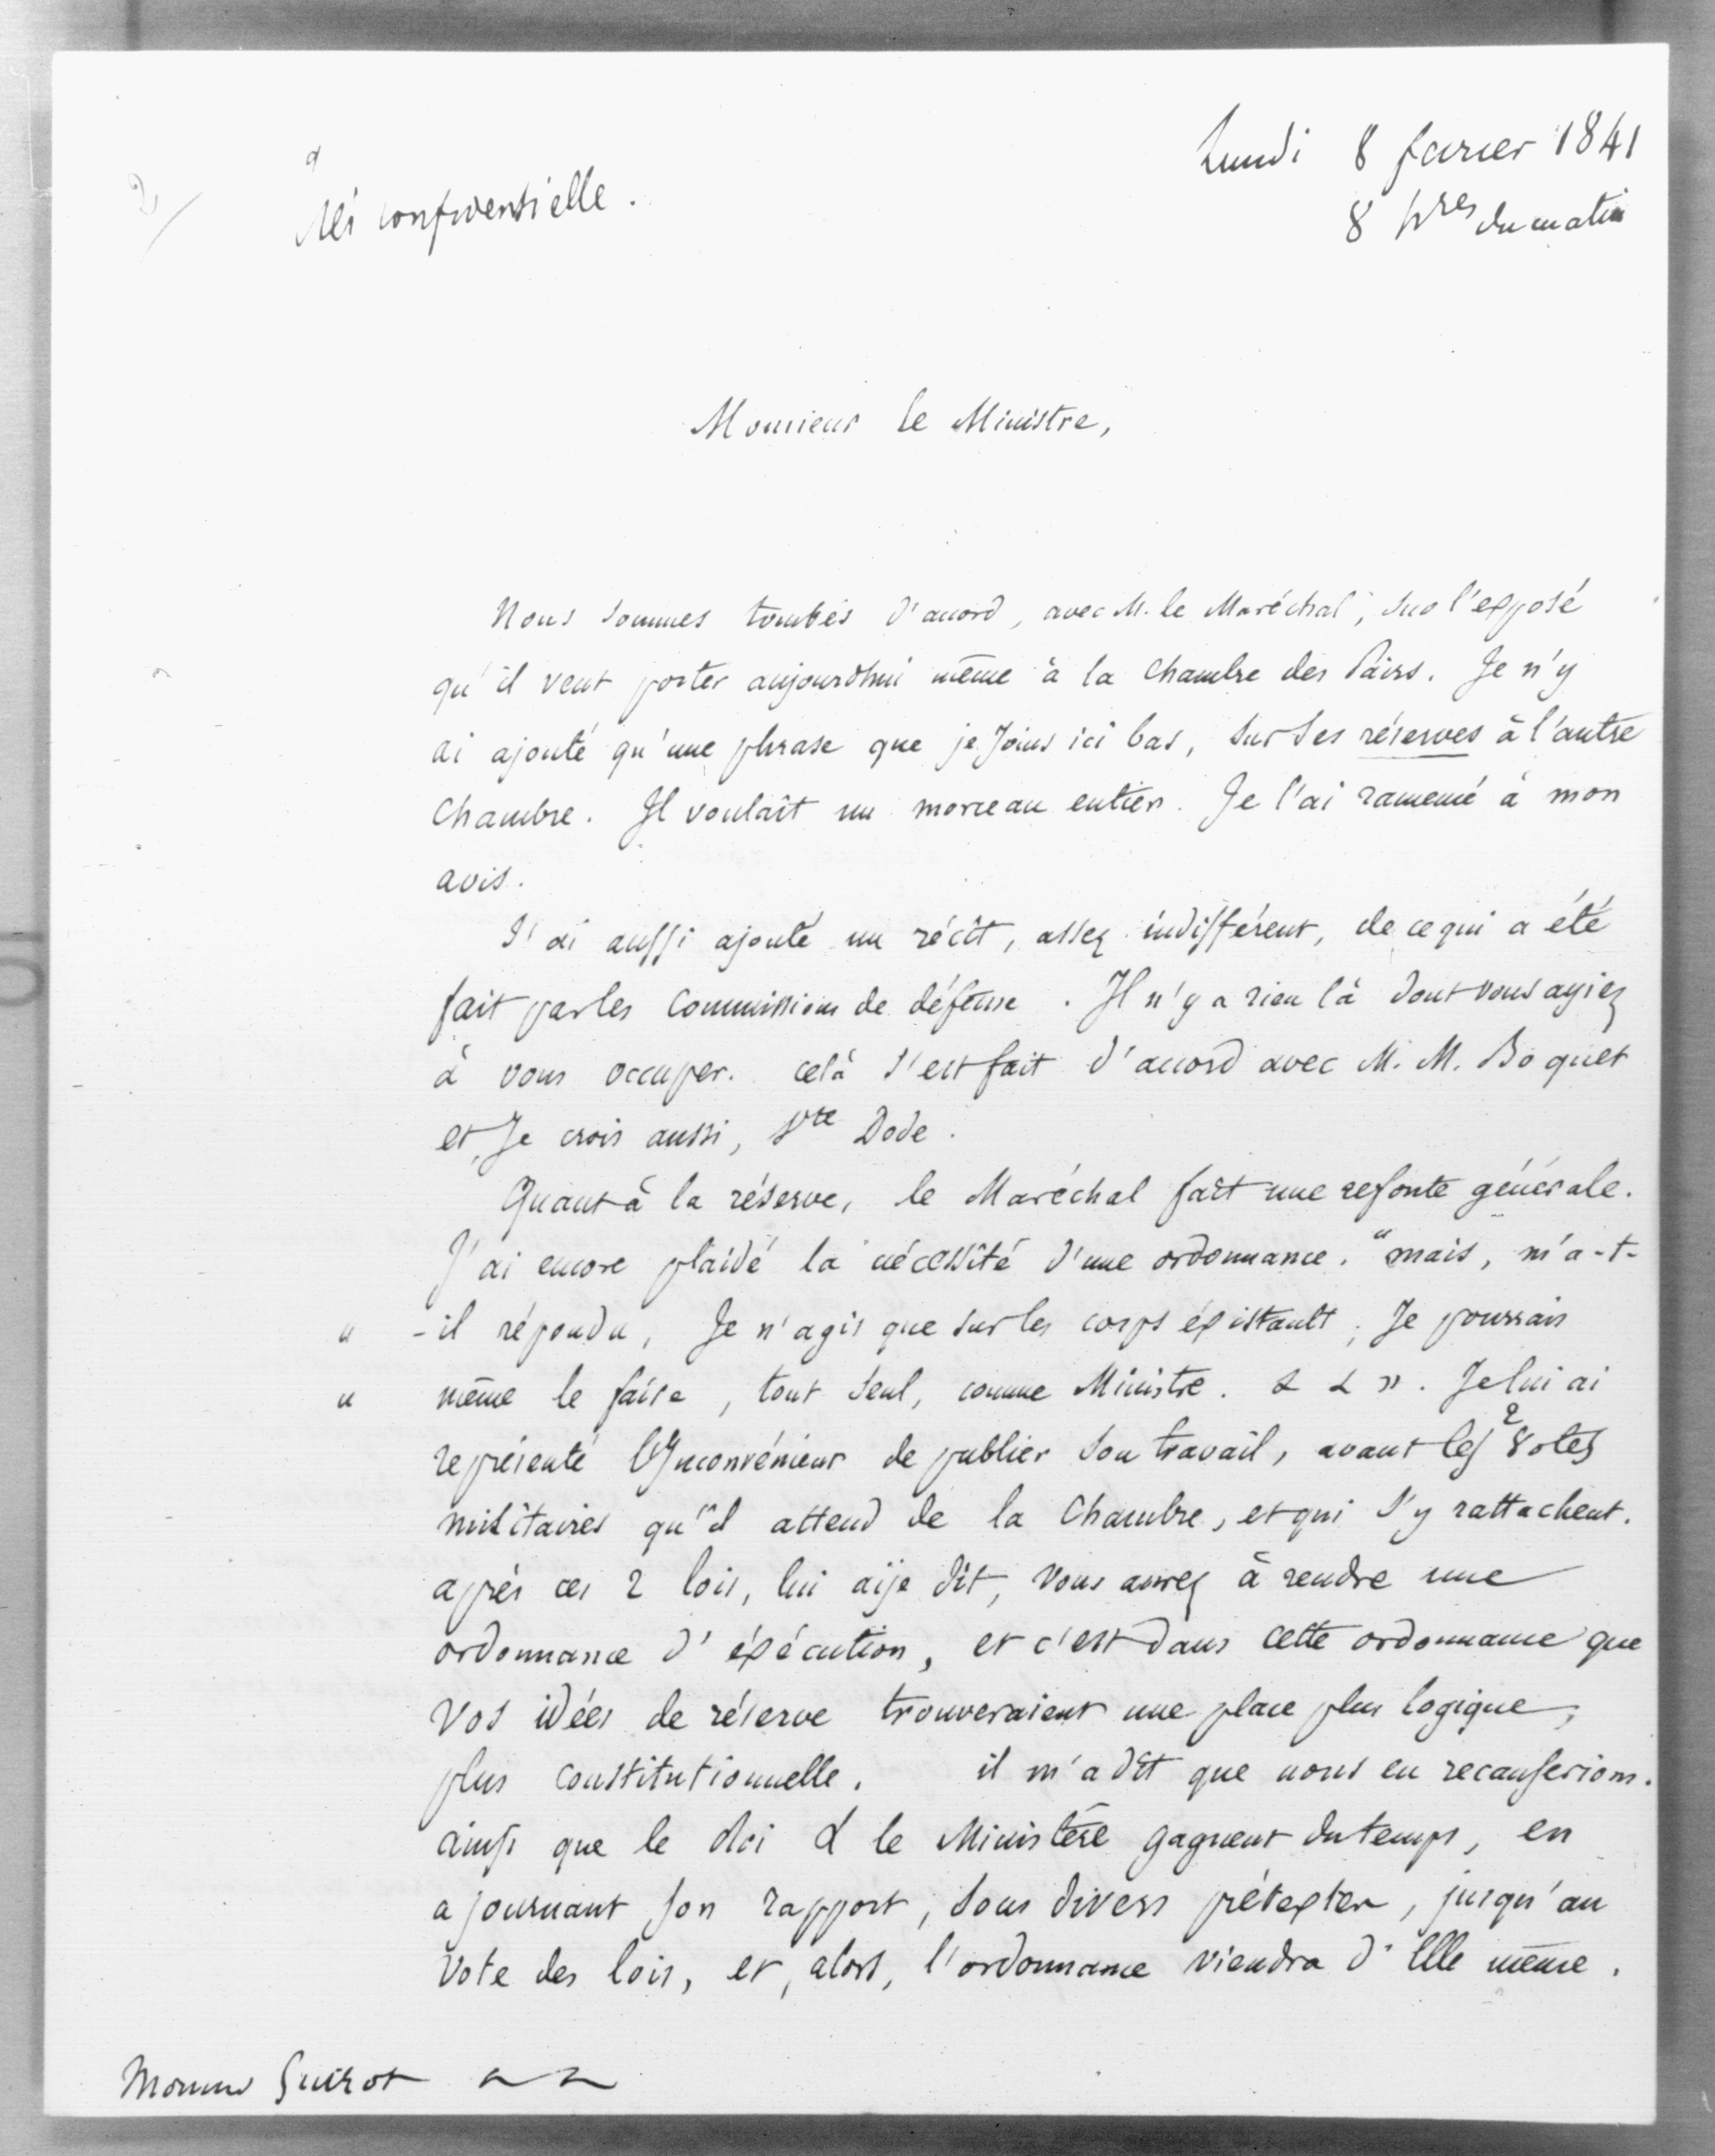 Lundi 8 fevrier 1841
8 hres du matin
2/
Très confidentielle.
Monsieur le Ministre,
Nous sommes tombés d'accord, avec M. le Maréchal, sur l'exposé
qu'il veut porter aujourdhui même à la Chambre des Pairs. Je n'y
ai ajouté qu'une phrase que je joins ici bas, sur ses réserves à l'autre
Chambre. Il voulait un morceau entier. Je l'ai ramené à mon
avis.
J'ai aussi ajouté un récit, assez indifférent, de ce qui a été
fait par les Commissions de défense. Il n'y a rien là dont vous ayiez
à vous occuper. celà s'est fait d'accord avec M. M. Boquet
et, Je crois aussi, Dode.
Quant à la réserve, le Maréchal fait une refonte générale.
J'ai encore plaidé la nécessité d'une ordonnance. "mais, m'a-t-
" -il répondu, Je n'agis que sur les corps éxistants; Je pourrais
" même le faire, tout seul, comme Ministre. & & ". Je lui ai
représenté l'Inconvénient de publier son travail, avant les 2 votes
militaires qu'il attend de la Chambre, et qui s'y rattachent.
après ces 2 lois, lui aije dit, vous aurez à rendre une
ordonnance d'éxécution, et c'est dans cette ordonnance que
vos idées de réserve trouveraient une place plus logique,
plus constitutionnelle. il m'a dit que nous en recauserions.
ainsi que le Roi & le Ministère gagnent du temps, en
ajournant son rapport, sous divers prétextes, jusqu'au
vote des lois, et, alors, l'ordonnance viendra d'Elle même.
Monsieur Guizot